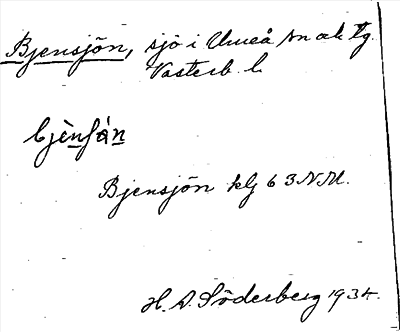 Bjensjön, sjö i Umeå sn ock tg.
Västerb. l.
bjènʃȧn
Bjensjön klj 63 N.M.
H. D. Söderberg 1934.